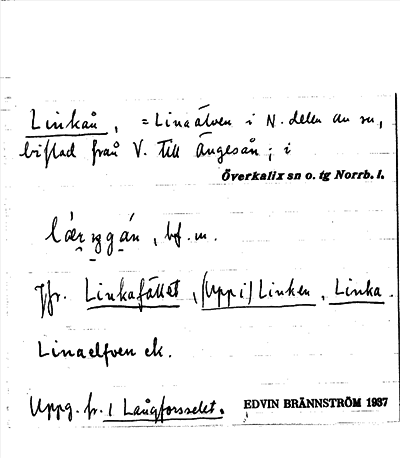 Linkån, = Linaälven i N. delen av sn,
biflod från V. till Ängesån; i
Överkalix sn o. tg Norrb. l.
bf. m.
Jfr. Linkafallet, (Uppi) Linken, Linka.
Linaelfven ek.
Uppg. fr. 1 Långforsselet. EDVIN BRÄNNSTRÖM 1937